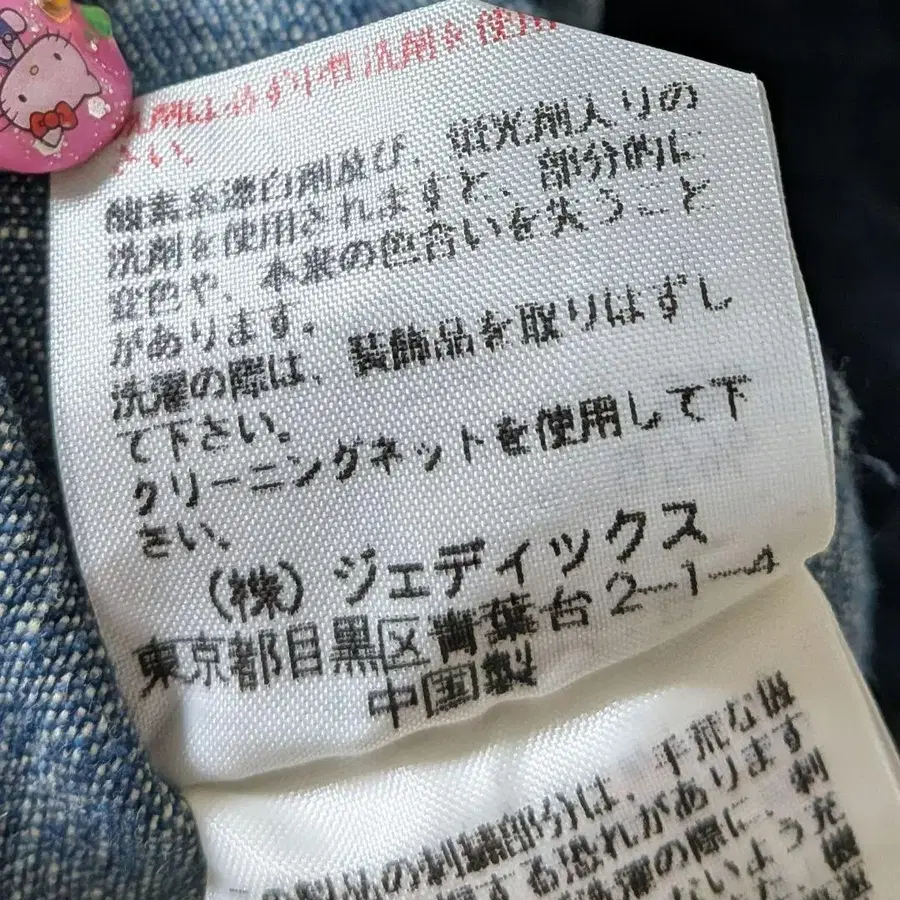 洗剤は必ず中性洗剤を使用
さい。
酸素系漂白剤及び、蛍光剤入りの
洗剤を使用されますと、部分的に
変色や、本来の色合いを失うこと
があります。
洗濯の際は、装飾品を取りはずし
て下さい。
クリーニングネットを使用して下
さい。
(株)ジェディックス
東京都目黒区青葉台2-1-4
中国製
製品の刺繍部分は、手荒な取
する恐れがあります
洗濯の際に、刺
ないよう充